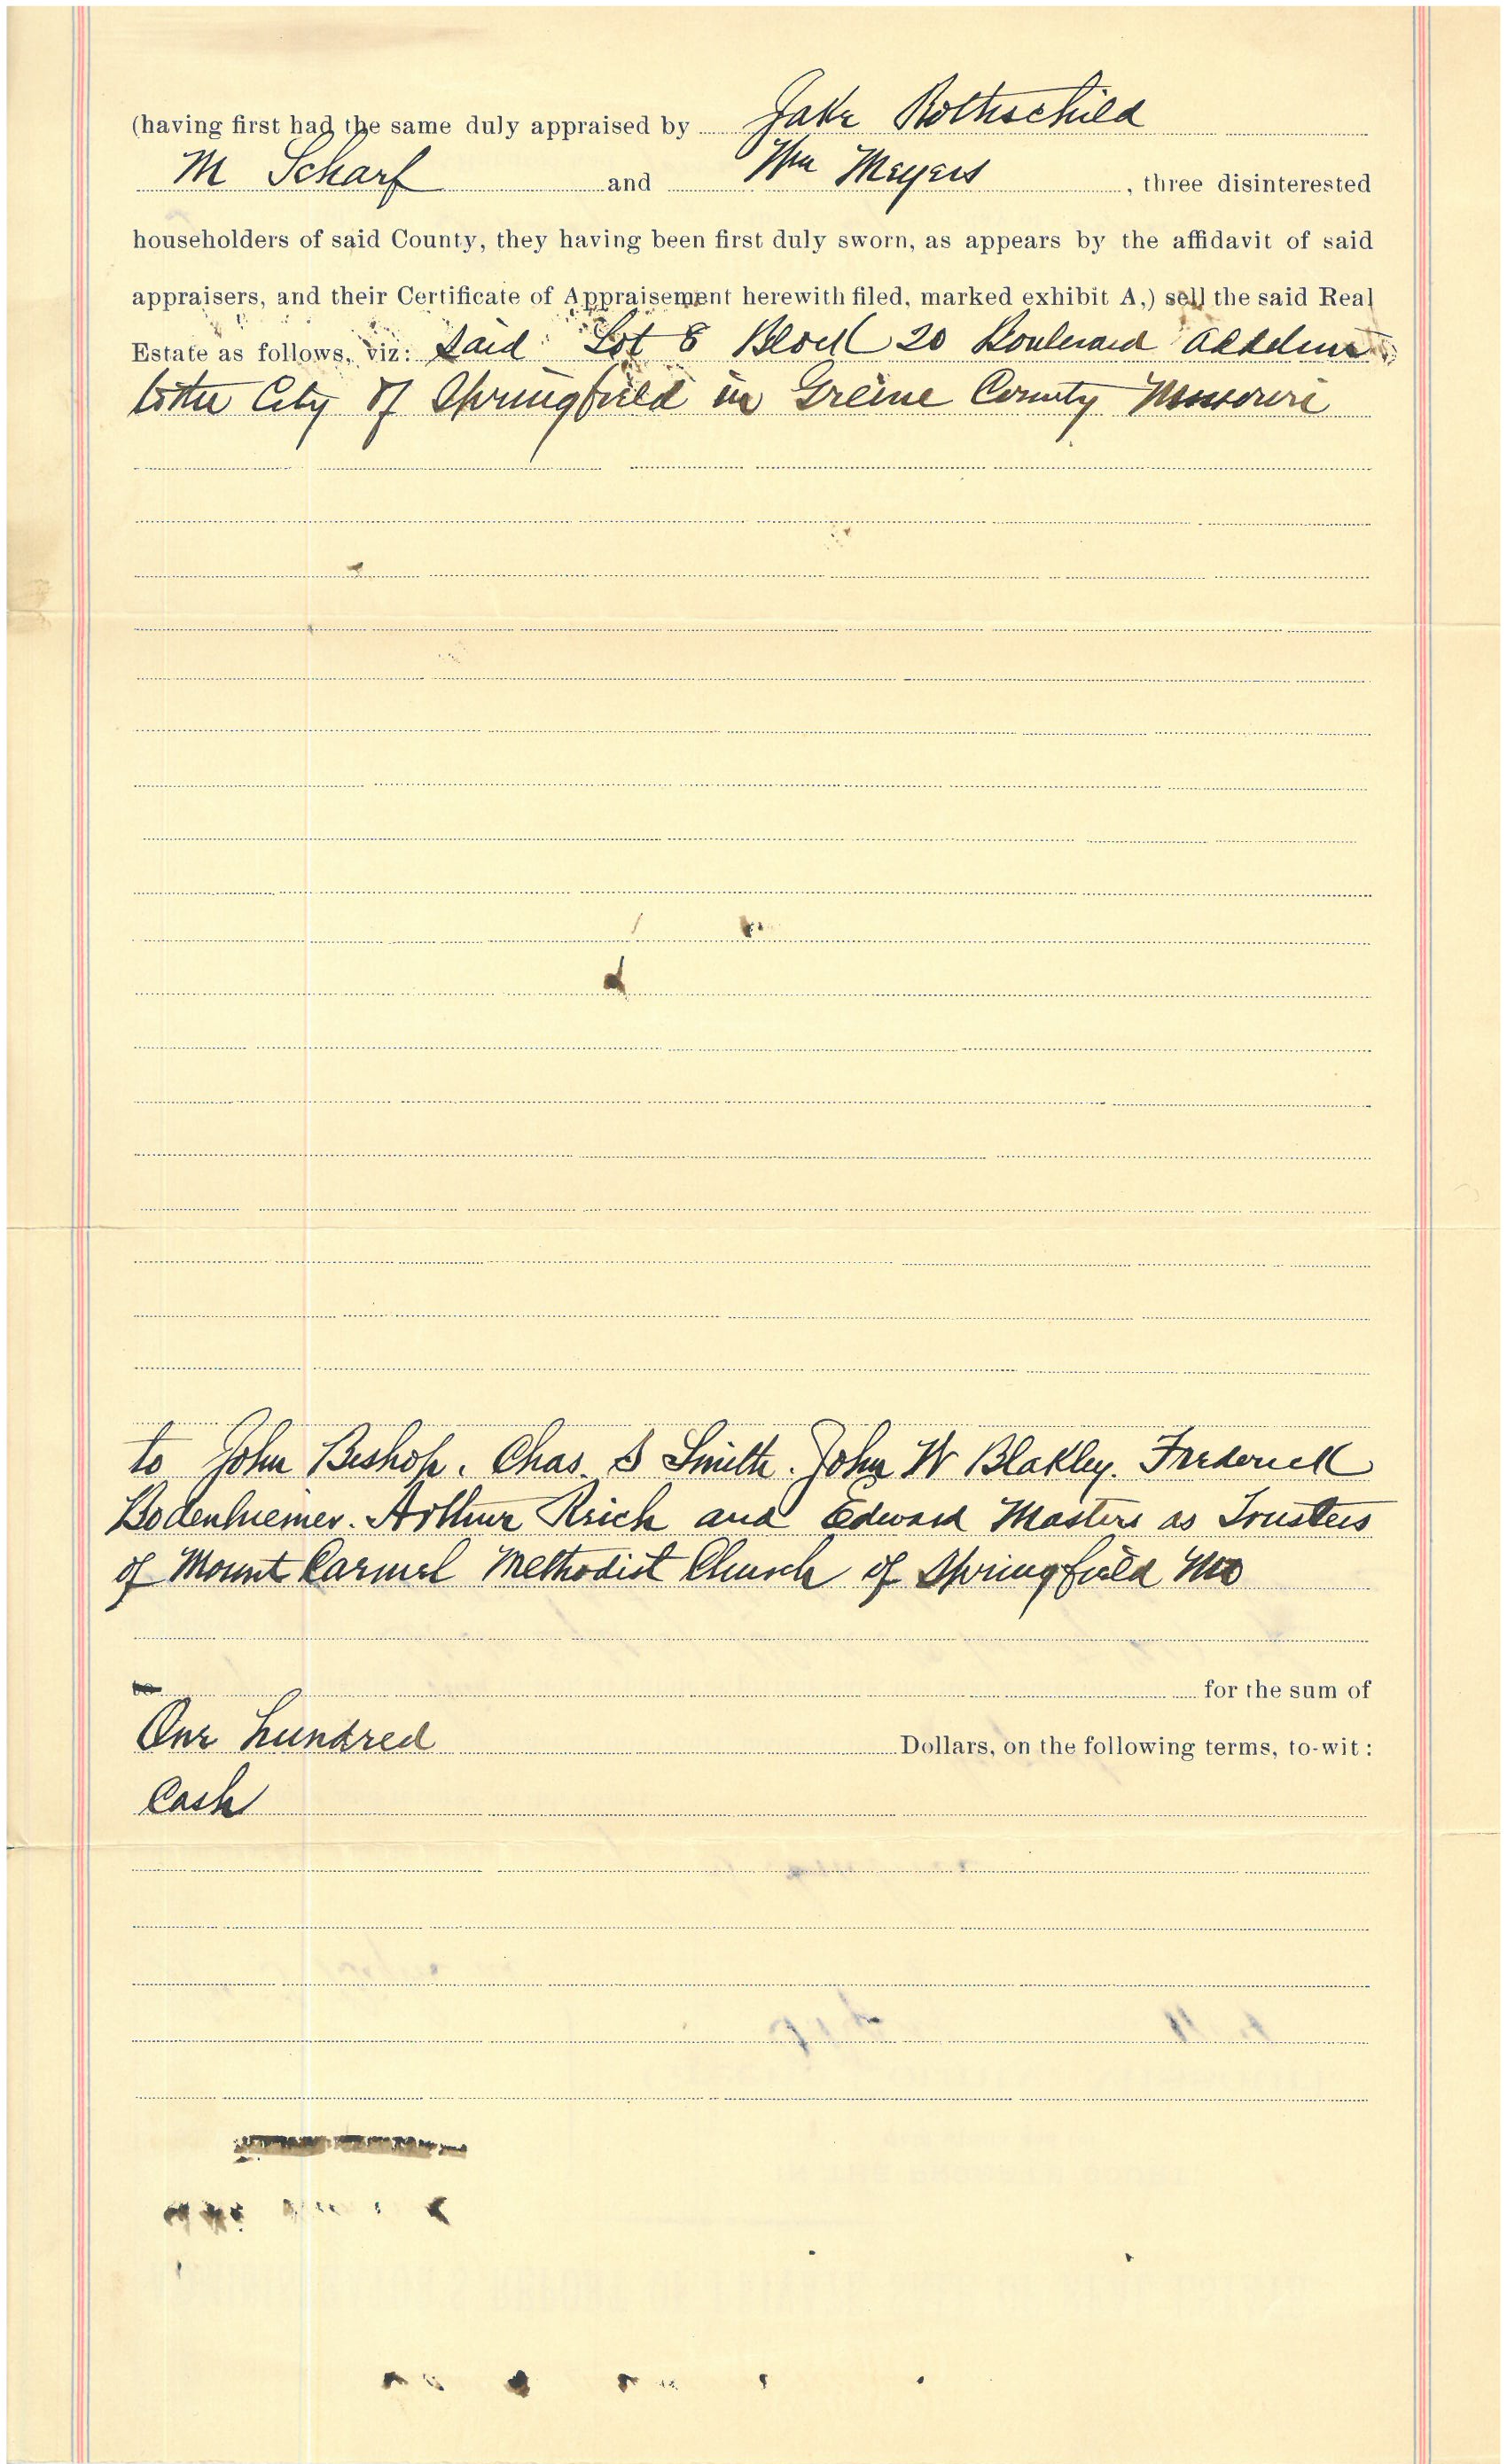 (having first had the same duly appraised by Jake Rothschild
M Scharf and Wm Meyers, three disinterested
householders of said County, they having been first duly sworn, as appears by the affidavit of said
appraisers, and their Certificate of Appraisement herewith filed, marked exhibit A,) sell the said Real
Estate as follows, viz: Said Lot 8 Block 20 Boulevard Addition
to the City of Springfield in Greene County Missouri
to John Bishop. Chas. S Smith. John W Blakley. Frederick
Bodenhiemer. Arthur Reich and Edward Masters as Trustees
of Mount Carmel Methodist Church of Springfield Mo
for the sum of
One hundred Dollars, on the following terms, to-wit:
Cash